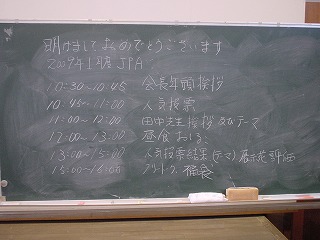 明けましておめでとうございます
2009年1月度 JPA
10:30~10:45 会長年頭挨拶
10:45~11:00 人気投票
11:00~12:00 田中先生挨拶 テーマ
12:00~13:00 昼食
13:00~15:00 人気投票結果(テーマ)展示花評価
15:00~16:00 フリートーク